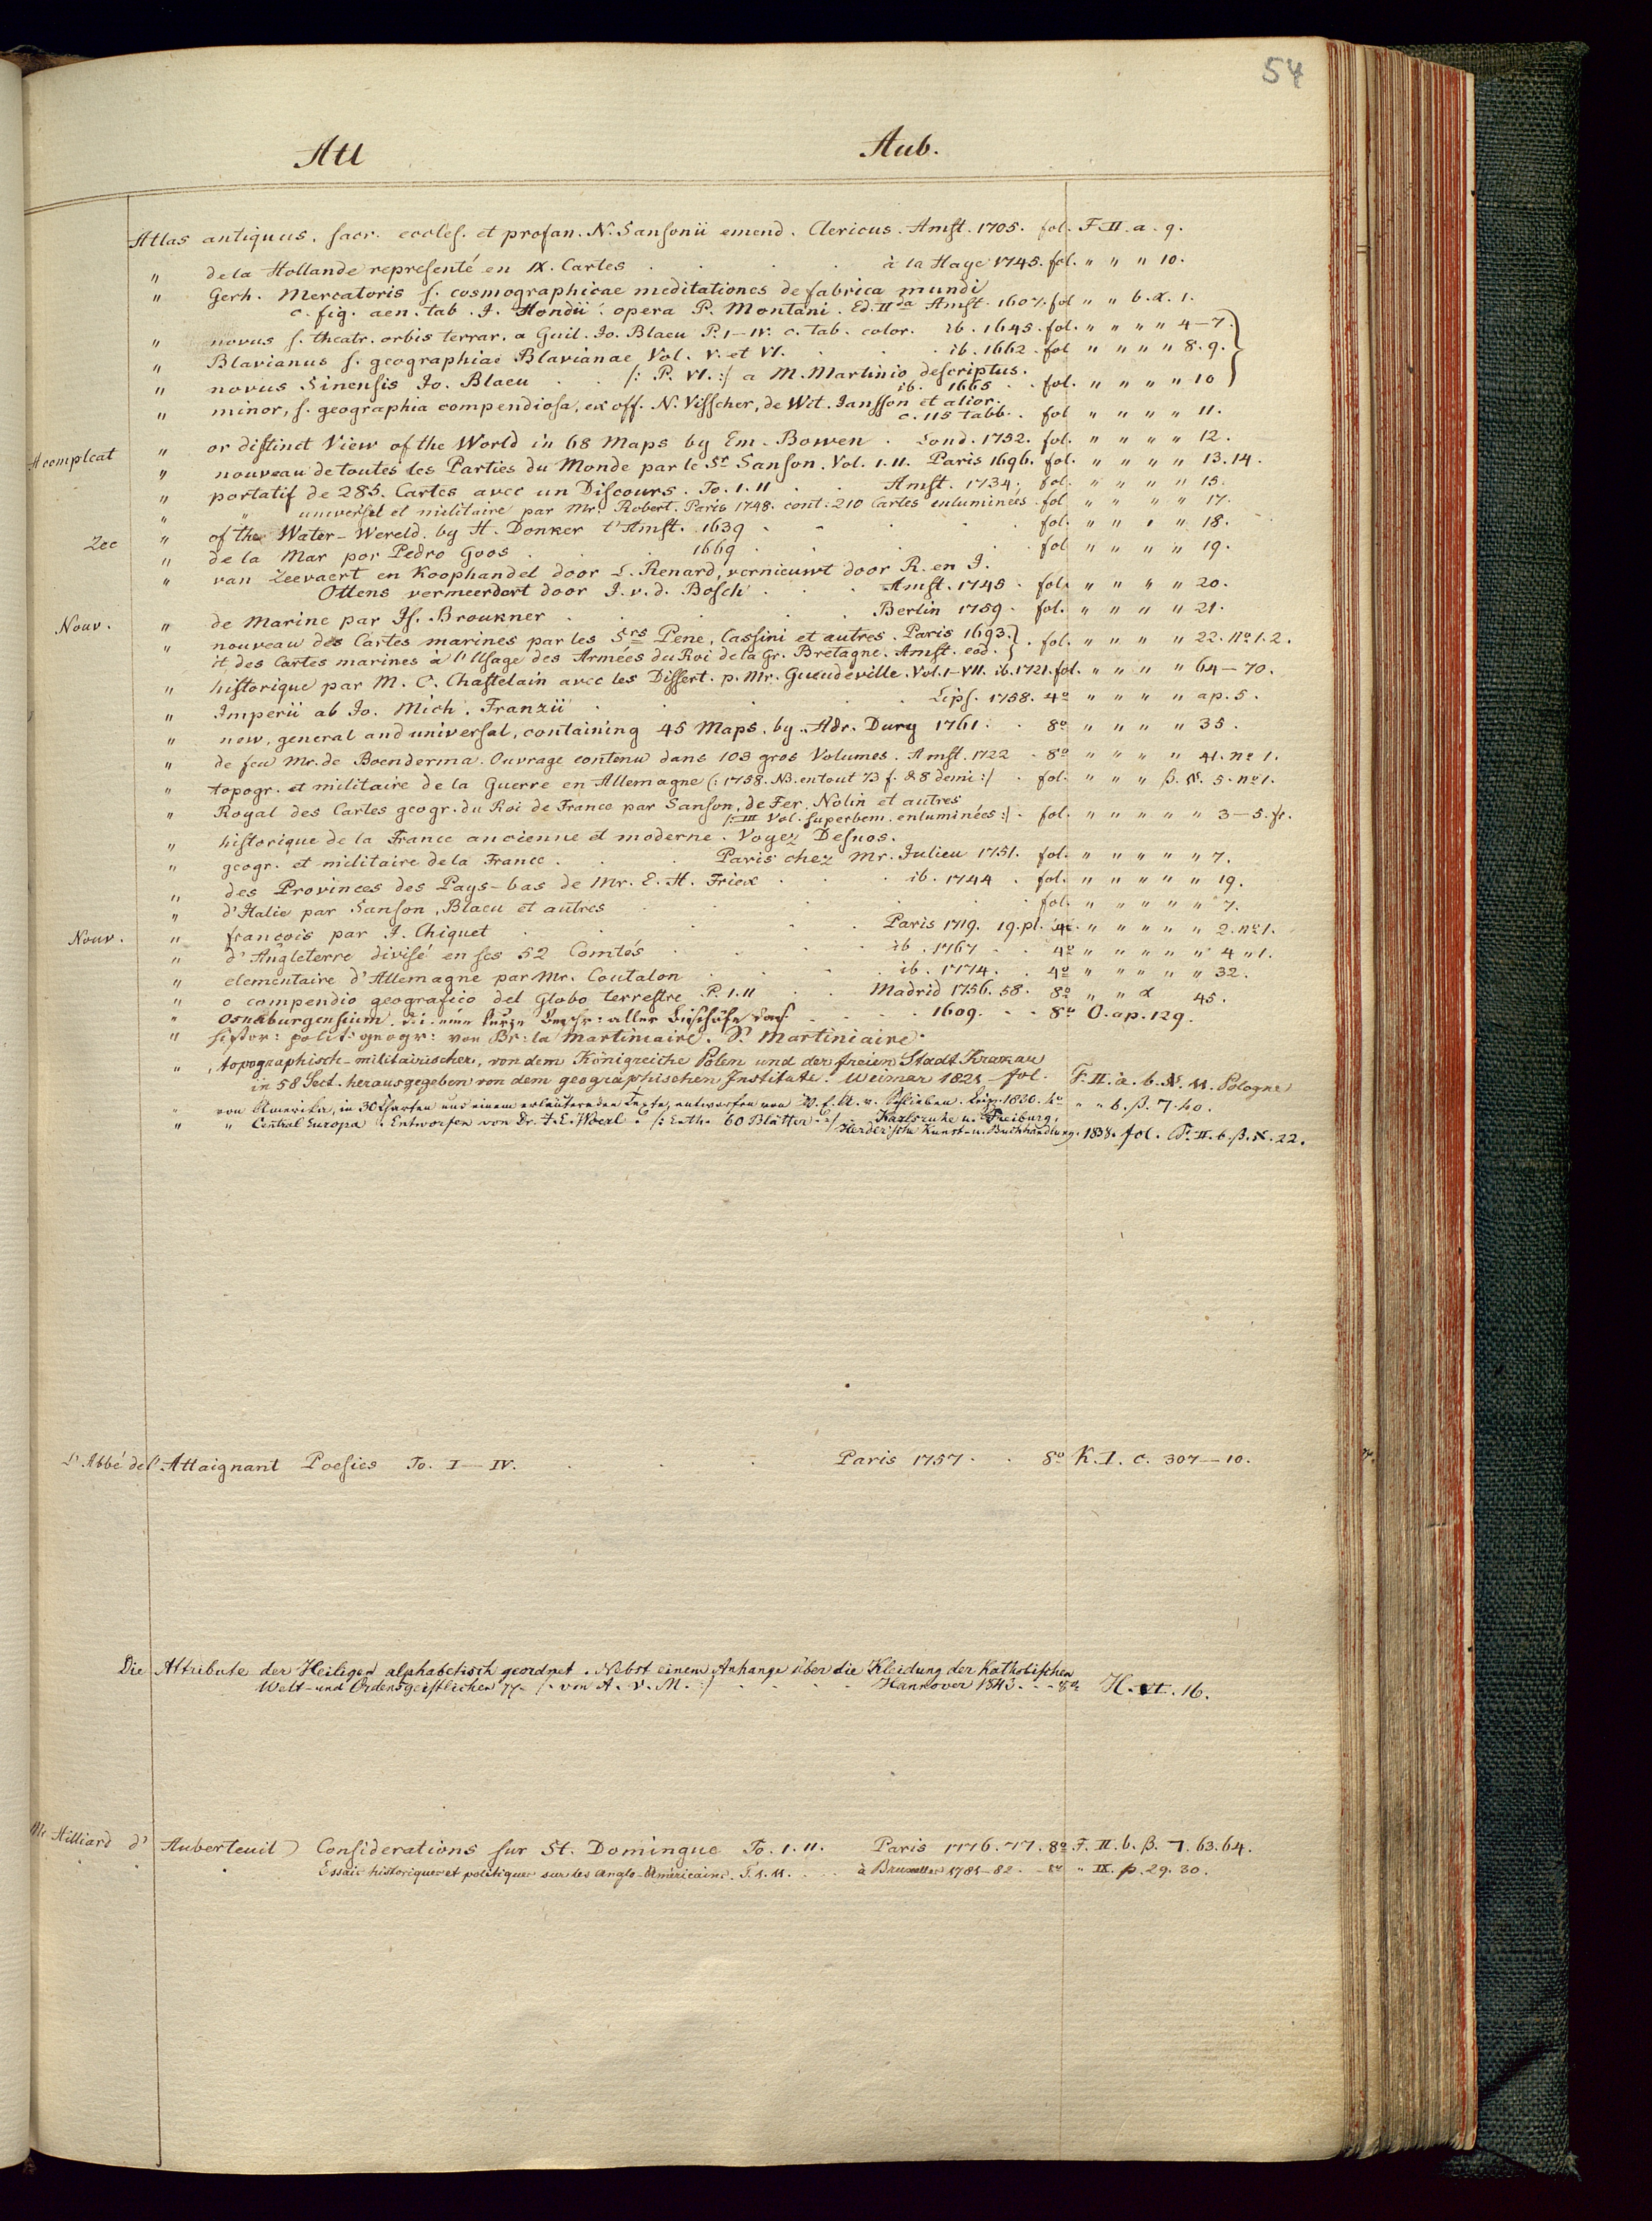 54
Atl Aub.
Atlas antiquus, sacr. eccles. et profan. N. Sansonii emend. Clericus. Amst. 1705. fol. F. II. a. 9.
" de la Hollande representé en IX. Cartes . . . . à la Haye 1745. fol. " " " 10.
" Gerh. Mercatoris s. cosmographicae meditationes de fabrica mundi
c. fig. aen. tab. J. Hondii. opera P. Montani. Ed. IIda Amst. 1607. fol " " b. α. 1.
" novus s. theatr. orbis terrar. a Guil. Jo. Blaeu P. I-IV. c. tab. color. ib. 1645. fol. " " " " 4-7.
" Blavianus s. geographiae Blavianae Vol. V. et VI. . . . ib. 1662. fol " " " " 8. 9.
" novus Sinensis Jo. Blaeu . . /: P. VI. :/ a M. Martinio descriptus.
ib. 1665 . . fol. " " " " 10
" minor, s. geographia compendiosa, ex off. N. Visscher, de Wit. Jansson et alior.
c. 115 tabb. . fol " " " " 11.
A compleat " or distinct View of the World in 68 Maps by Em. Bowen . Lond. 1752. fol. " " " " 12.
" nouveau de toutes les Parties du Monde par le Sr Sanson. Vol. I. II. Paris 1696. fol. " " " " 13. 14.
" portatif de 285. Cartes avec un Discours. To. I. II . . Amst. 1734. fol. " " " " 15.
" " universel et militaire par Mr. Robert. Paris 1748. cont: 210 Cartes enluminées. fol " " " " 17.
Zee " of the Water-Wereld. by H. Donker t'Amst. 1639 . . . . fol. " " " " 18.
" de la Mar por Pedro Goos . . . 1669 . . . . fol " " " " 19.
" van Zeevaert en Koophandel door L. Renard, vernieuwt door R. en J.
Ottens vermeerdort door J. v. d. Bosch . . . Amst. 1745 . fol. " " " " 20.
Nouv. " de Marine par Js. Broukner . . . . Berlin 1759 . fol. " " " " 21.
" nouveau des Cartes marines par les Srs Pene, Cassini et autres. Paris 1693. } . fol. " " " " 22. no 1. 2.
it des Cartes marines à l'Usage des Armées du Roi de la Gr. Bretagne. Amst. eod. }
" historique par M. C. Chastelain avec les Dissert. p. Mr. Gueudeville. Vol. I-VII. ib. 1721. fol. " " " " 64-70.
" Imperii ab Jo. Mich. Franzii . . . . . Lips. 1758. 4o " " " " ap. 5.
" new, general and universal, containing 45 Maps. by. Adr. Dury 1761. . 8o " " " " 35.
" de feu Mr. de Boenderma. Ouvrage contenu dans 103 gros Volumes. Amst. 1722 . 8o " " " " 41. no 1.
" topogr. et militaire de la Guerre en Allemagne (: 1758. NB. entout 73 f. & 8 demi :/ . fol. " " " β. א. 5. no 1.
" Royal des Cartes geogr. du Roi de France par Sanson, de Fer, Nolin et autres
/: III Vol. superbem. enluminées :/ . fol. " " " " " 3-5. fr.
" historique de la France ancienne et moderne. Voyez Desnos.
" geogr. et militaire de la France . . . Paris chez Mr. Julien 1751. fol. " " " " " 7.
" des Provinces des Pays-bas de Mr. E. H. Friex . . . ib. 1744 . fol. " " " " " 19.
" d'Italie par Sanson, Blaeu et autres . . . . . fol. " " " " " 7.
Nouv. " françois par J. Chiquet . . . . Paris 1719. 19. pl. 4o. " " " " " 2. no 1.
" d'Angleterre divisé en ses 52 Comtés . . . ib. 1767 . . 4o " " " " " 4 " 1.
" elementaire d'Allemagne par Mr. Coutalon . . . . ib. 1774. . 4o " " " " " 32.
" o compendio geografico del Globo terrestre. P. I. II . . Madrid 1756. 58. 8o " " α 45.
" Osnaburgensium. d. i. eine kurze Beschr: aller Bischöfe das. . . . . 1609. . . 8o O. ap. 129.
" histor: polit: geogr: von Br: la Martiniaire. S. Martiniaire.
" topographisch-militairischer, von dem Königreiche Polen und der freien Stadt Krakau
in 58 Sect. herausgegeben von dem geographischen Institute. Weimar 1821 fol. F. II. a. b. א. 11. Pologne
" von Amerika, in 30 Charten und einem erläuternden Texte, entworfen von W. E. A. v. Schlieben. Leipz. 1830. 4o " " b. β. 7. 40.
" " Central Europa. Entworfen von Dr. J. E. Woerl. /: Enth. 60 Blätter :/ Karlsruhe u. Freiburg,
Herder'sche Kunst- u. Buchhandlung. 1838. fol. F. II. b. β. א. 22.
L'Abbé de l'Attaignant Poesies To. I-IV. . . . Paris 1757. . 8o K. I. c. 307-10.
Die Attribute der Heiligen alphabetisch geordnet. Nebst einem Anhange über die Kleidung der Katholischen
Welt- und Ordensgeistlichen pp. /: von A. v. M. :/ . . . . Hannover 1843 . . . 8o H. VI. 16.
Mr Hilliard d'Auberteuil) Considerations sur St. Domingue To. I. II. Paris 1776. 77. 8o F. II. b. β. 7. 63. 64.
Essais historiques et politiques sur les Anglo-Américains. T. I. II. . . . à Bruxelles 1781-82 . . 8o " IX. p. 29. 30.